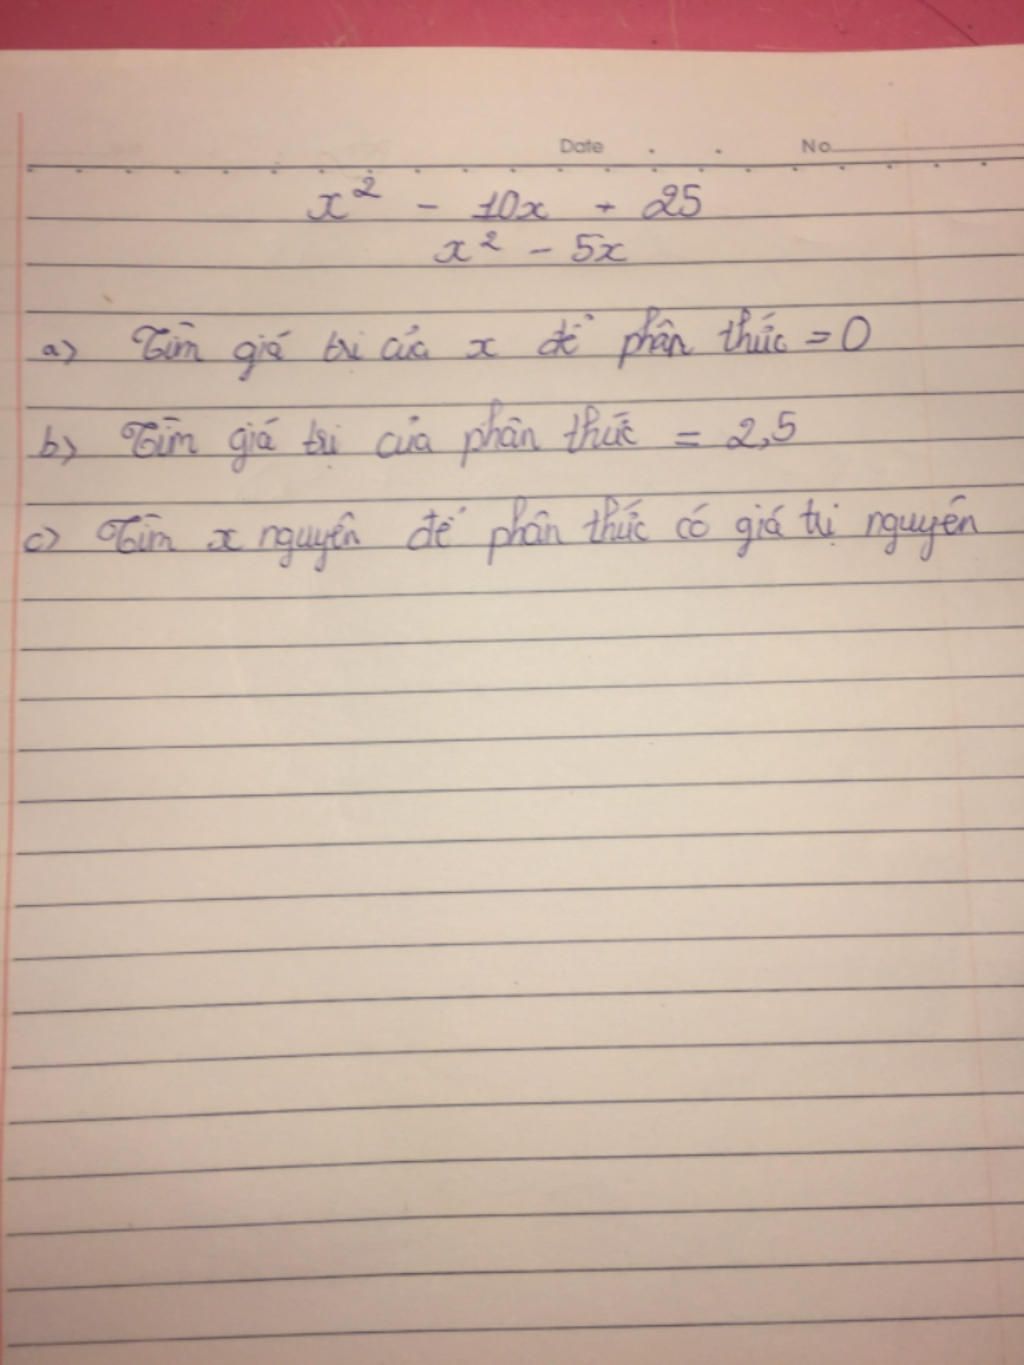 Date . . No
x² - 10x + 25
x² - 5x
a) Tìm giá trị của x để phân thức = 0
b) Tìm giá trị của phân thức = 2,5
c) Tìm x nguyên để phân thức có giá trị nguyên